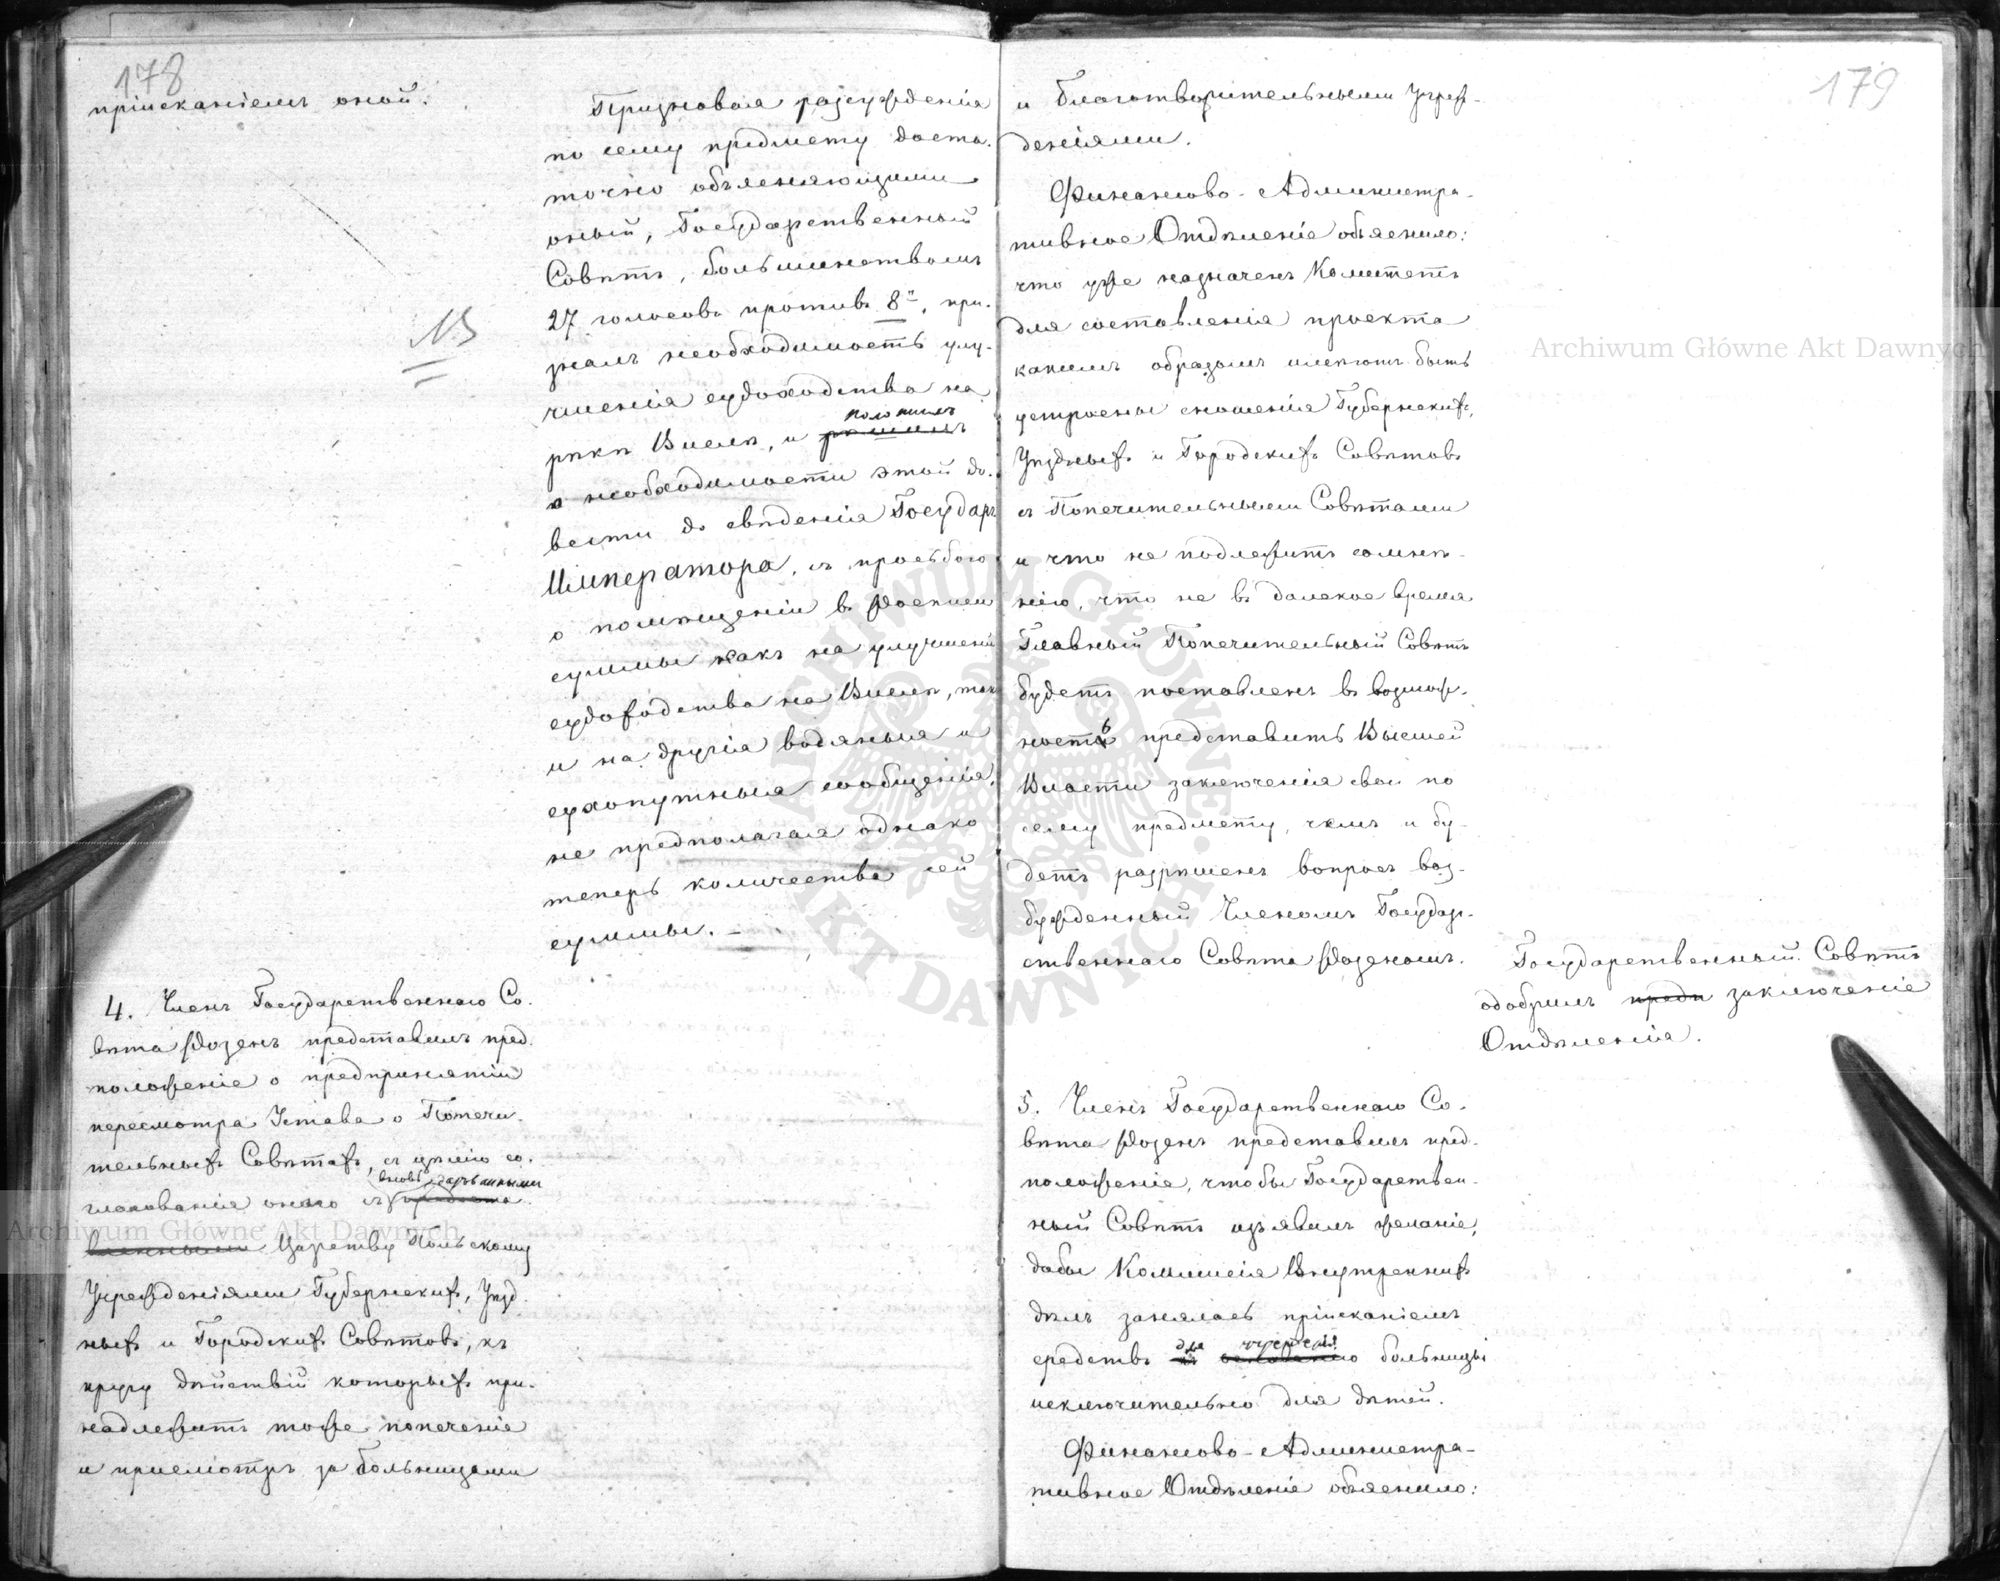 178
пріисканіемъ оной.
Признавая разсужденія
по сему предмету доста-
точно объясняющими
оный, Государственный
Совѣтъ, большинствомъ
27 голосовъ противъ 8и, при-
зналъ необходимость улу-
чшенія судоходства на
рѣкѣ Вислѣ, и положилъ
рѣшилъ
о необходимости этой до-
вести до свѣденія Государя
Императора, съ просьбою
о помѣщеніи въ росписи
суммы какъ на улучшенія
судоходства на Вислѣ, такъ
и на другія водяныя и
сухопутныя сообщенія,
не предполагая однако
теперь количества сей
суммы. –
NB
4. Членъ Государственнаго Со-
вѣта Розенъ представилъ пред-
положеніе о предпринятіи
пересмотра Устава о Попечи-
тельныхъ Совѣтахъ, съ цѣлію со-
гласованія онаго съ вновь дарованными
Царству Польскому
Учрежденіями Губернскихъ, Уѣзд-
ныхъ и Городскихъ Совѣтовъ, къ
кругу дѣйствій которыхъ при-
надлежитъ тоже попеченіе
и присмотръ за больницами
179
и Благотворительными Учреж-
деніями.
Финансово-Администра-
тивное Отдѣленіе объяснило:
что уже назначенъ Комитетъ
для составленія проекта
какимъ образомъ имѣютъ быть
устроены сношенія Губернскихъ,
Уѣздныхъ и Городскихъ Совѣтовъ
съ Попечительными Совѣтами
и что не подлежитъ сомнѣ-
нію, что не въ далекое время
Главный Попечительный Совѣтъ
будетъ поставленъ въ возмож-
ность представить Высшей
Власти заключенія свои по
сему предмету, чемъ и бу-
детъ разрѣшенъ вопросъ воз-
бужденный Членомъ Государ-
ственнаго Совѣта Розеномъ.
Государственный Совѣтъ
одобрилъ предп заключеніе
Отдѣленія.
5. Членъ Государственнаго Со-
вѣта Розенъ представилъ пред-
положеніе, чтобы Государствен-
ный Совѣтъ изъявилъ желаніе,
дабы Коммисія Внутреннихъ
дѣлъ занялась пріисканіемъ
средствъ для учрежденія больницы
исключительно для дѣтей.
Финансово-Администра-
тивное Отдѣленіе объяснило:
Archiwum Główne Akt Dawnych
Archiwum Główne Akt Dawnych
ARCHIWUM GŁÓWNE AKT DAWNYCH